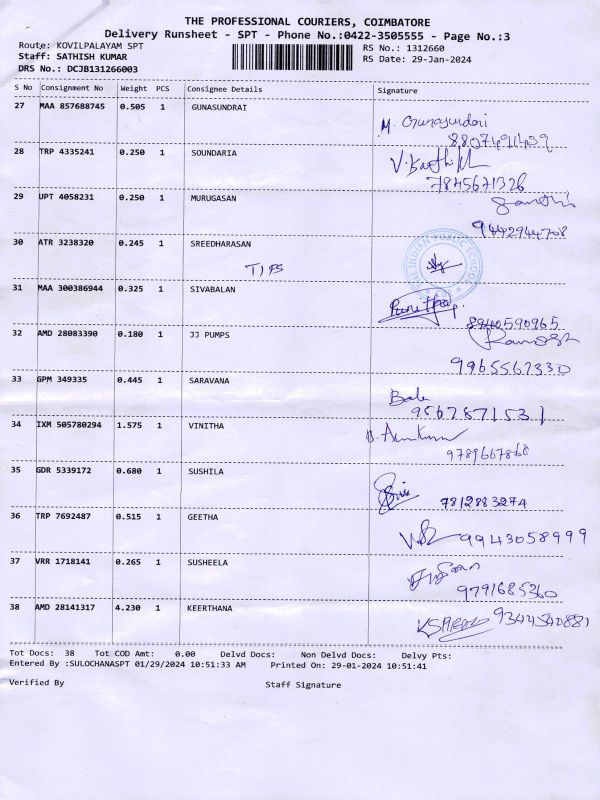 THE PROFESSIONAL COURIERS, COIMBATORE
Delivery Runsheet - SPT - Phone No.:0422-3505555 - Page No.:3
Route: KOVILPALAYAM SPT RS No.: 1312660
Staff: SATHISH KUMAR RS Date: 29-Jan-2024
DRS No.: DCJB131266003
S No Consignment No Weight PCS Consignee Details Signature
27 MAA 857688745 0.505 1 GUNASUNDRAI
M. Gunasundari
8807491439
28 TRP 4335241 0.250 1 SOUNDARIA
7845671326
29 UPT 4058231 0.250 1 MURUGASAN
9442944708
30 ATR 3238320 0.245 1 SREEDHARASAN
TIPS
INDIAN PUBLIC SCHOOL
31 MAA 300386944 0.325 1 SIVABALAN
8940590965
32 AMD 28083390 0.180 1 JJ PUMPS
9965567330
33 GPM 349335 0.445 1 SARAVANA
Bala
9567871531
34 IXM 505780294 1.575 1 VINITHA
9789667860
35 GDR 5339172 0.680 1 SUSHILA
7812883274
36 TRP 7692487 0.515 1 GEETHA
9943058999
37 VRR 1718141 0.265 1 SUSHEELA
9791685360
38 AMD 28141317 4.230 1 KEERTHANA
9344540881
Tot Docs: 38 Tot COD Amt: 0.00 Delvd Docs: Non Delvd Docs: Delvy Pts:
Entered By :SULOCHANASPT 01/29/2024 10:51:33 AM Printed On: 29-01-2024 10:51:41
Verified By Staff Signature